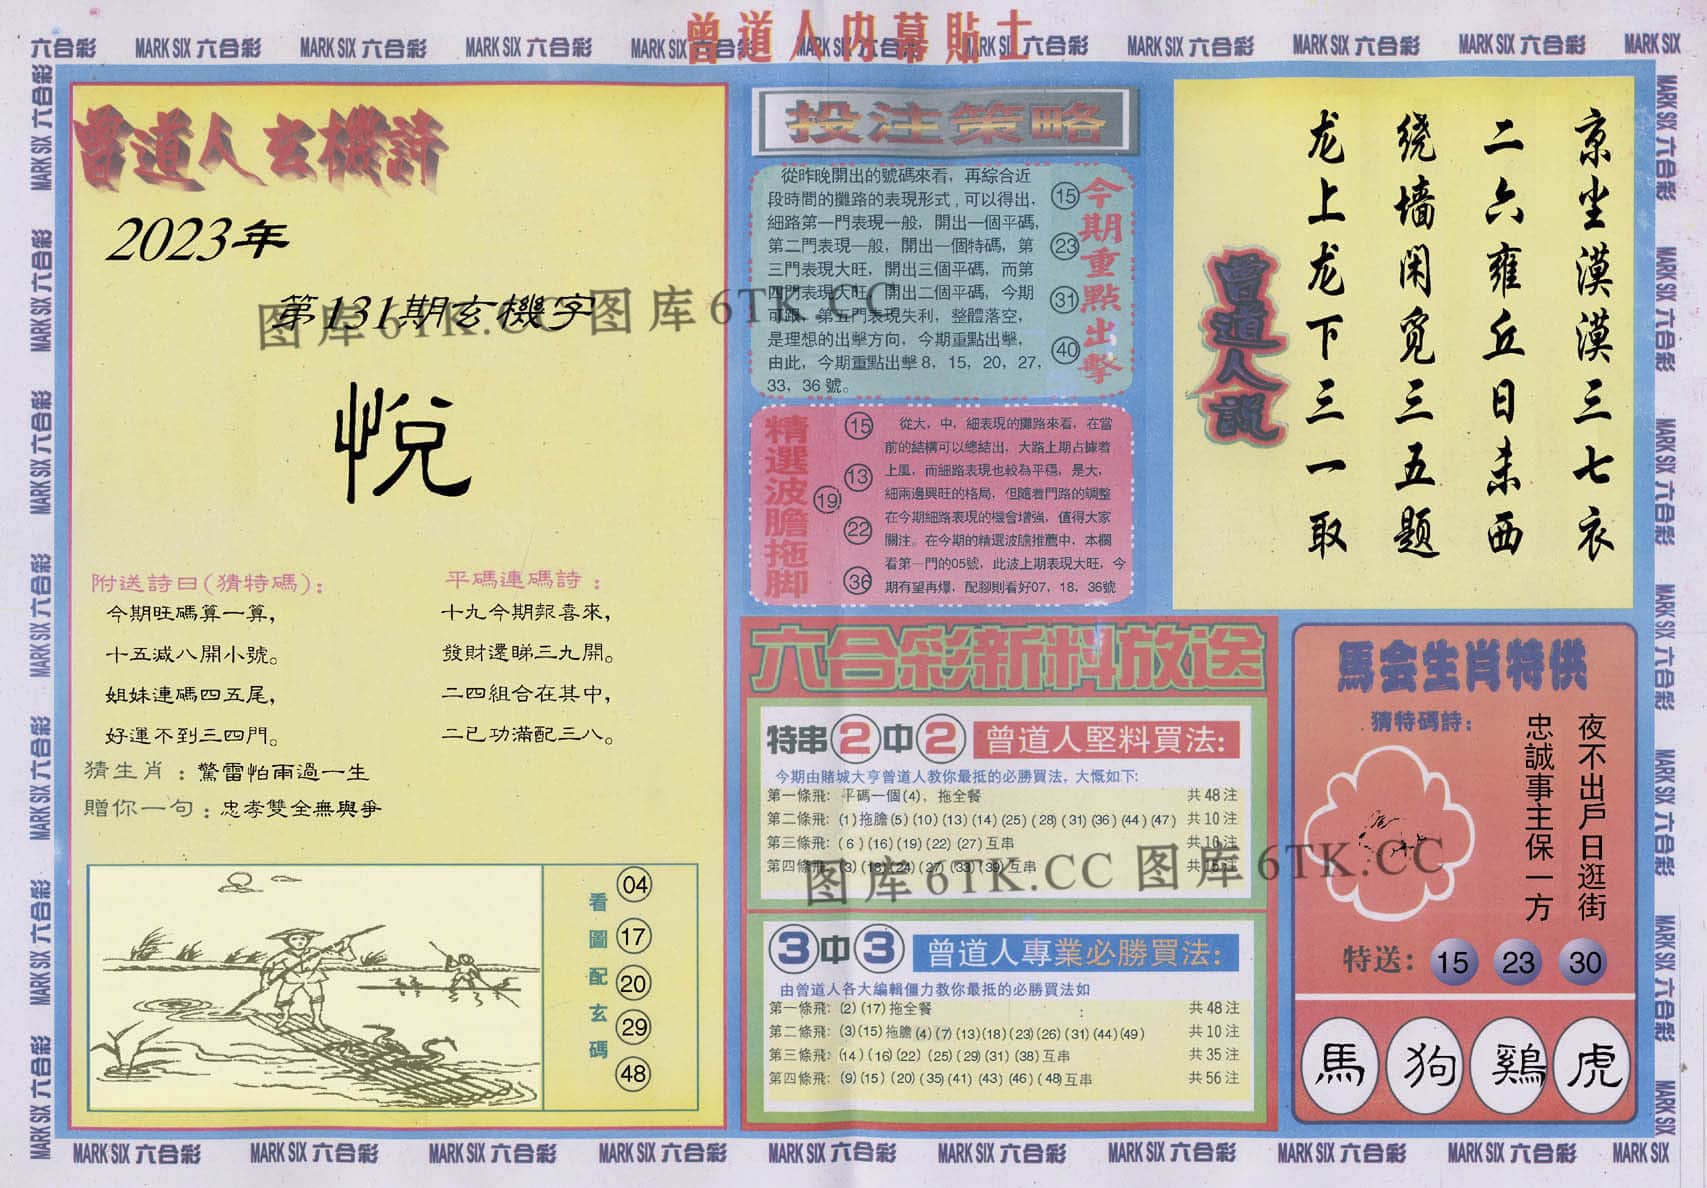 曾道人内幕貼士
六合彩 MARK SIX 六合彩 MARK SIX 六合彩 MARK SIX 六合彩 MARK SIX 六合彩 MARK SIX 六合彩 MARK SIX 六合彩 MARK SIX 六合彩 MARK SIX 六合彩 MARK SIX 六合彩 MARK SIX
曾道人玄機詩
2023年
第131期玄機字
悦
附送詩曰(猜特碼)：
今期旺碼算一算，
十五减八開小號。
姐妹連碼四五尾，
好運不到三四門。
平碼連碼詩：
十九今期報喜來，
發財還睇三九開。
二四組合在其中，
二已功滿配三八。
猜生肖：驚雷怕雨過一生
贈你一句：忠孝雙全無與爭
看圖配玄碼
04
17
20
29
48
投注策略
從昨晚開出的號碼來看，再綜合近
段時間的攤路的表現形式,可以得出，
細路第一門表現一般，開出一個平碼，
第二門表現一般，開出一個特碼，第
三門表現大旺，開出三個平碼，而第
四門表現大旺，開出二個平碼，今期
可跟，第五門表現失利，整體落空，
是理想的出擊方向，今期重點出擊，
由此，今期重點出擊 8，15，20，27，
33，36 號。
今期重點出擊
15
23
31
40
精選波膽拖脚
15
13
19
22
36
從大，中，細表現的攤路來看，在當
前的結構可以總結出，大路上期占據着
上風，而細路表現也較為平穩，是大，
細兩邊興旺的格局，但隨着門路的調整
在今期細路表現的機會增強，值得大家
關注。在今期的精選波膽推薦中，本欄
看第一門的05號，此波上期表現大旺，今
期有望再爆，配腳則看好07，18，36號
京坐漠漠三七衣
二六雍丘日未西
绕墙闲觅三五题
龙上龙下三一取
曾道人説
六合彩新料放送
特串2中2 曾道人堅料買法：
今期由賭城大亨曾道人教你最抵的必勝買法，大慨如下：
第一條飛：平碼一個(4)，拖全餐 共48注
第二條飛：(1)拖膽(5)(10)(13)(14)(25)(28)(31)(36)(44)(47) 共10注
第三條飛：(6)(16)(19)(22)(27)互串 共10注
第四條飛：(3)(18)(24)(27)(33)(39)互串 共15注
3中3 曾道人專業必勝買法：
由曾道人各大編輯僵力教你最抵的必勝買法如
第一條飛：(2)(17)拖全餐 ： 共48注
第二條飛：(3)(15)拖膽(4)(7)(13)(18)(23)(26)(31)(44)(49) 共10注
第三條飛：(14)(16)(22)(25)(29)(31)(38)互串 共35注
第四條飛：(9)(15)(20)(35)(41)(43)(46)(48)互串 共56注
馬会生肖特供
猜特碼詩：
夜不出戶日逛街
忠誠事主保一方
特送：15 23 30
馬 狗 鷄 虎
图库6TK.CC 图库6TK.CC
图库6TK.CC 图库6TK.CC
MARK SIX 六合彩 MARK SIX 六合彩 MARK SIX 六合彩 MARK SIX 六合彩 MARK SIX 六合彩 MARK SIX 六合彩 MARK SIX 六合彩 MARK SIX 六合彩 MARK SIX 六合彩 MARK SIX